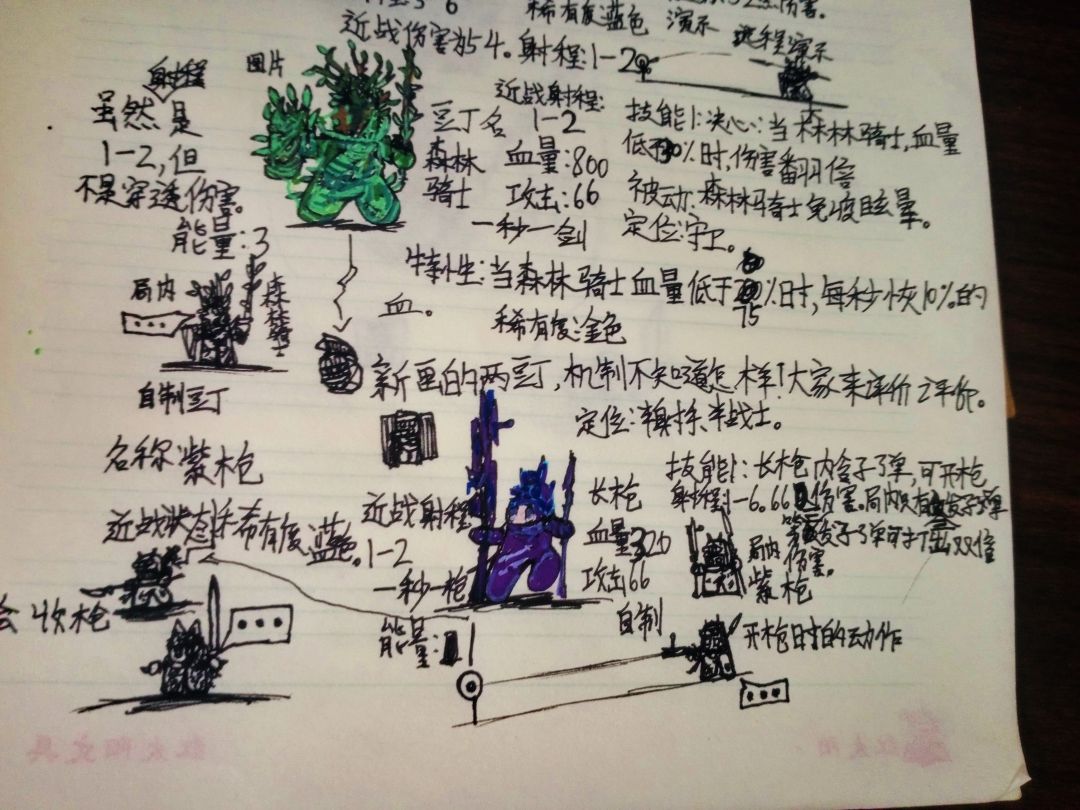 稀有度蓝色 演示 远程演示
近战伤害为54。射程:1-2
射程
图片
虽然是
1-2,但
不是穿透伤害。
能量:3
近战射程:
豆丁名 1-2
森林 血量:800
骑士 攻击:66
一秒一剑
技能1:决心:当森林骑士,血量
低于30%时,伤害翻1倍
被动:森林骑士免疫眩晕。
定位:守卫。
特性:当森林骑士血量低于75%时,每秒恢10%的
血。
稀有度:金色
局内
森林骑士
自制豆丁
新画的两豆丁,机制不知道怎样!大家来评价评价。
定位:半射手,半战士。
名称紫枪
近战状态
稀有度蓝色。
近战射程
1-2
一秒一枪
能量:1
长枪
血量320
攻击66
自制
技能1:长枪内含子弹,可开枪
射程1-6.66伤害。局内只有发子弹
发子弹可打出双倍
伤害。
局内
紫枪
收枪
开枪时的动作
红太阳文具
红太阳